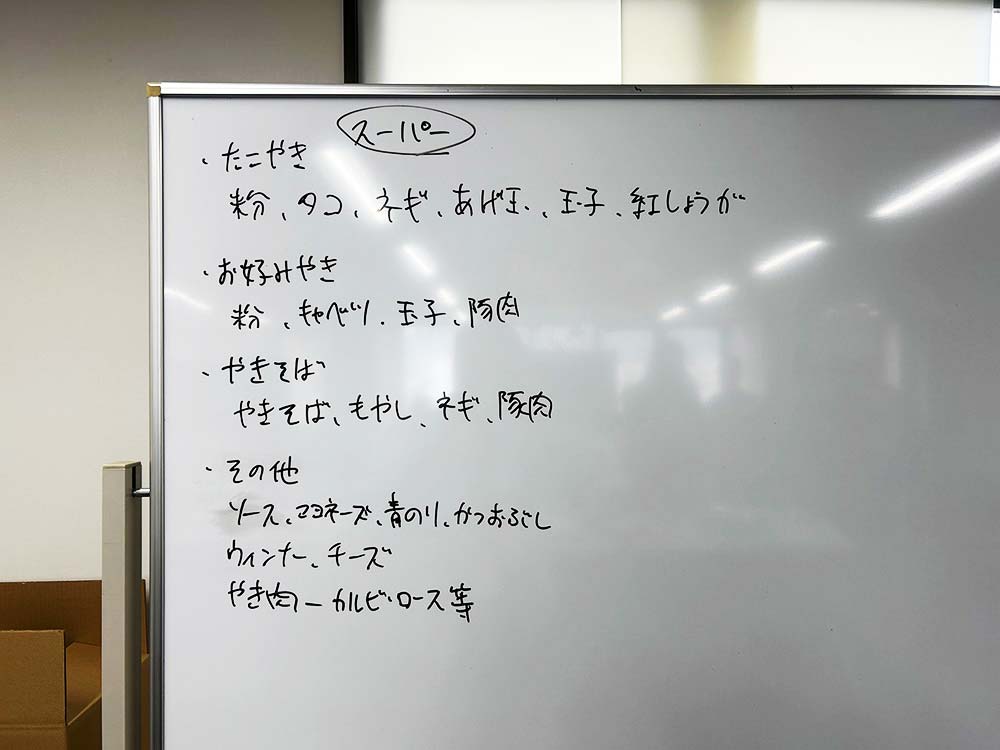 スーパー
・たこやき
粉、タコ、ネギ、あげ玉、玉子、紅しょうが
・お好みやき
粉、キャベツ、玉子、豚肉
・やきそば
やきそば、もやし、ネギ、豚肉
・その他
ソース、マヨネーズ、青のり、かつおぶし
ウィンナー、チーズ
やき肉ーカルビ・ロース等